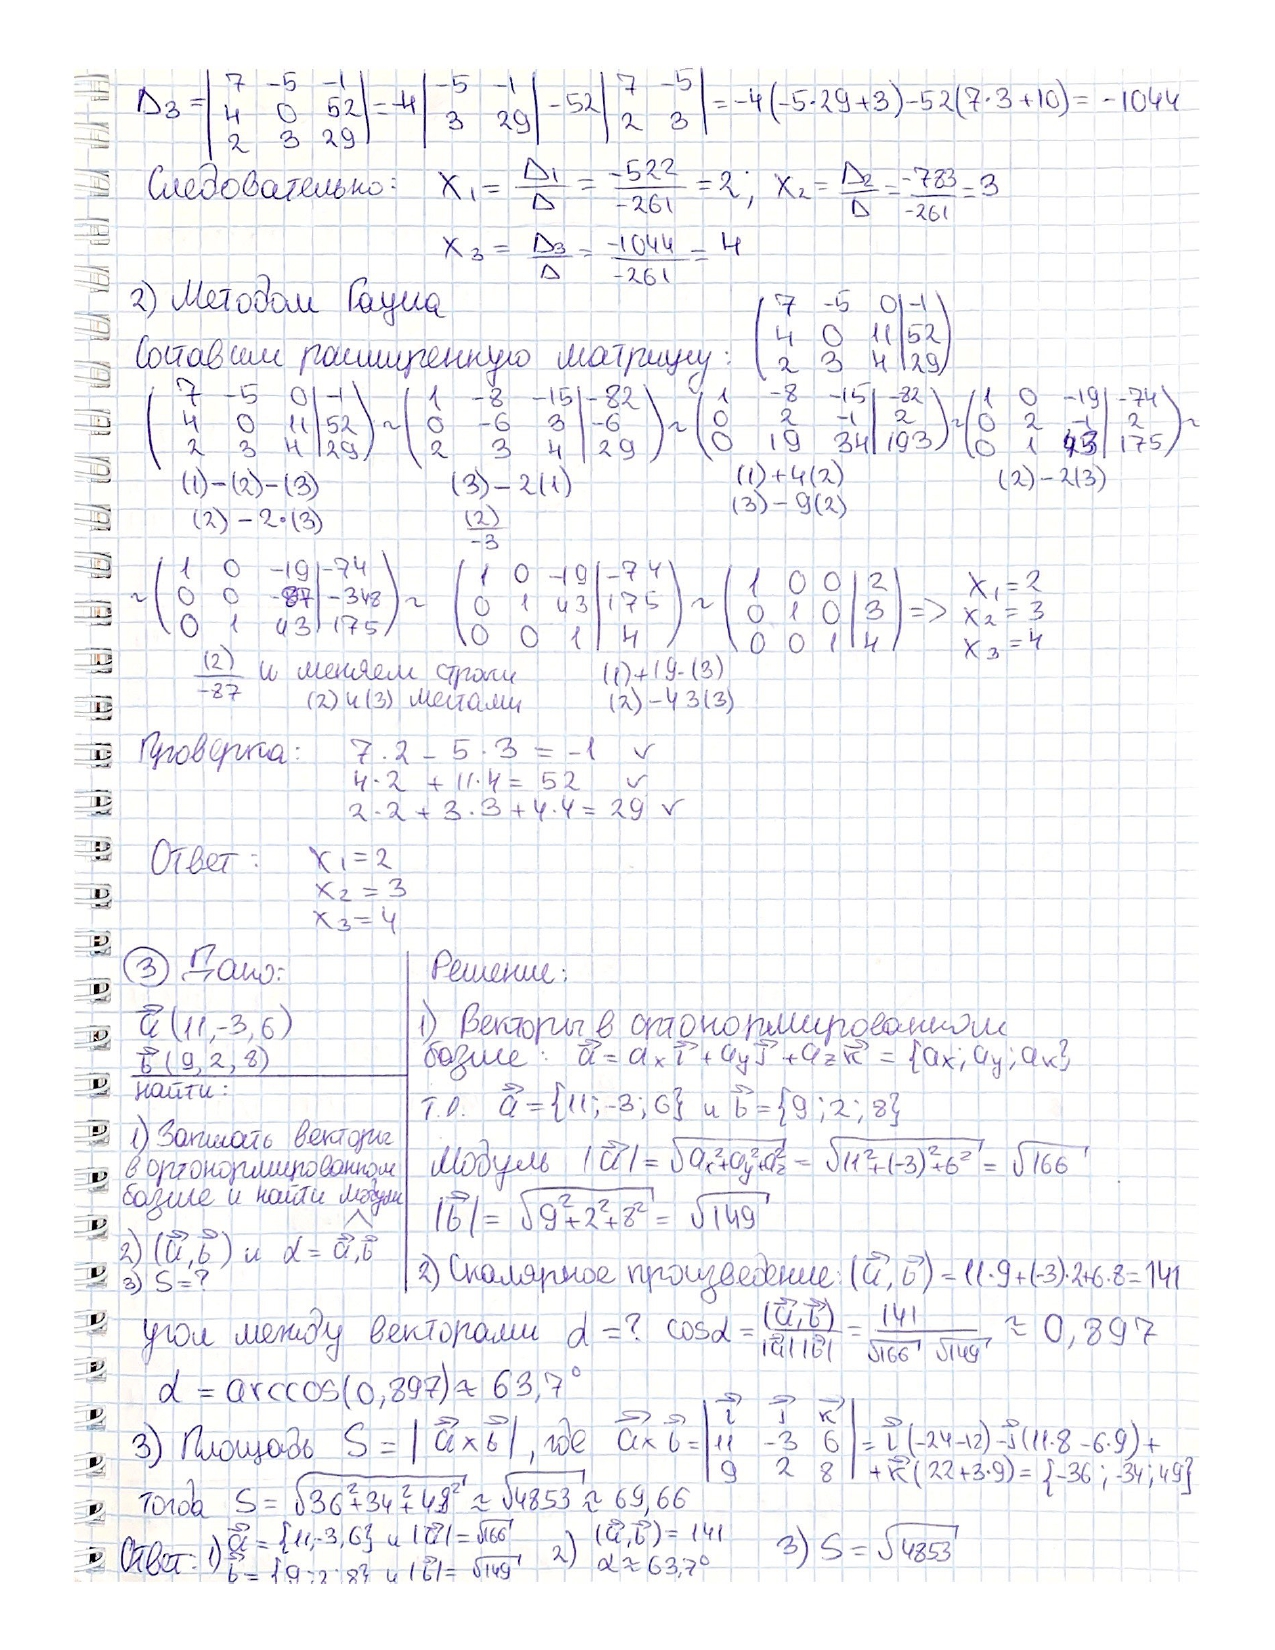 Δ3 = |7 -5 -1; 4 0 52; 2 3 29| = -4 |-5 -1; 3 29| - 52 |7 -5; 2 3| = -4(-5·29+3)-52(7·3+10) = -1044
Следовательно: x1 = Δ1/Δ = -522/-261 = 2; x2 = Δ2/Δ = -783/-261 = 3
x3 = Δ3/Δ = -1044/-261 = 4
2) Методом Гаусса
Составим расширенную матрицу: (7 -5 0 | -1; 4 0 11 | 52; 2 3 4 | 29)
(7 -5 0 | -1; 4 0 11 | 52; 2 3 4 | 29) ~ (1 -8 -15 | -82; 0 -6 3 | -6; 2 3 4 | 29) ~ (1 -8 -15 | -82; 0 2 -1 | 2; 0 19 34 | 193) ~ (1 0 -19 | -74; 0 2 -1 | 2; 0 1 43 | 175) ~
(1)-(2)-(3) (3)-2(1) (1)+4(2) (2)-2(3)
(2)-2·(3) (2)/-3 (3)-9(2)
~ (1 0 -19 | -74; 0 0 -87 | -348; 0 1 43 | 175) ~ (1 0 -19 | -74; 0 1 43 | 175; 0 0 1 | 4) ~ (1 0 0 | 2; 0 1 0 | 3; 0 0 1 | 4) => x1=2 x2=3 x3=4
(2)/-87 и меняем строки (1)+19·(3)
(2) и (3) местами (2)-43(3)
Проверка: 7·2 - 5·3 = -1 ✓
4·2 + 11·4 = 52 ✓
2·2 + 3·3 + 4·4 = 29 ✓
Ответ: x1=2
x2=3
x3=4
③ Дано:
a⃗(11,-3,6)
b⃗(9,2,8)
найти:
1) Записать векторы
в ортонормированном
базисе и найти модули
2) (a⃗,b⃗) и α = a⃗,b⃗
3) S=?
Решение:
1) Векторы в ортонормированном
базисе: a⃗ = axi⃗ + ayj⃗ + azk⃗ = {ax; ay; aк}
т.о. a⃗ = {11;-3;6} и b⃗ = {9;2;8}
Модуль |a⃗| = √(ax²+ay²+az²) = √(11²+(-3)²+6²) = √166
|b⃗| = √(9²+2²+8²) = √149
2) Скалярное произведение: (a⃗,b⃗) = 11·9+(-3)·2+6·8=141
угол между векторами α =? cosα = (a⃗,b⃗)/|a⃗||b⃗| = 141/√166 √149 ≈ 0,897
α = arccos(0,897) ≈ 63,7°
3) Площадь S = |a⃗×b⃗|, где a⃗×b⃗ = |i⃗ j⃗ k⃗; 11 -3 6; 9 2 8| = i⃗(-24-12)-j⃗(11·8-6·9)+
+k⃗(22+3·9) = {-36; -34; 49}
тогда S = √(36²+34²+49²) ≈ √4853 ≈ 69,66
Ответ: 1) a⃗ = {11,-3,6} и |a⃗|=√166 2) (a⃗,b⃗) = 141 3) S = √4853
b⃗ = {9;2;8} и |b⃗| = √149 α ≈ 63,7°